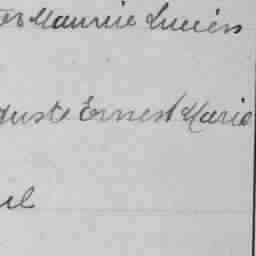 Maurice Lucien
guste Ernest Marie
el